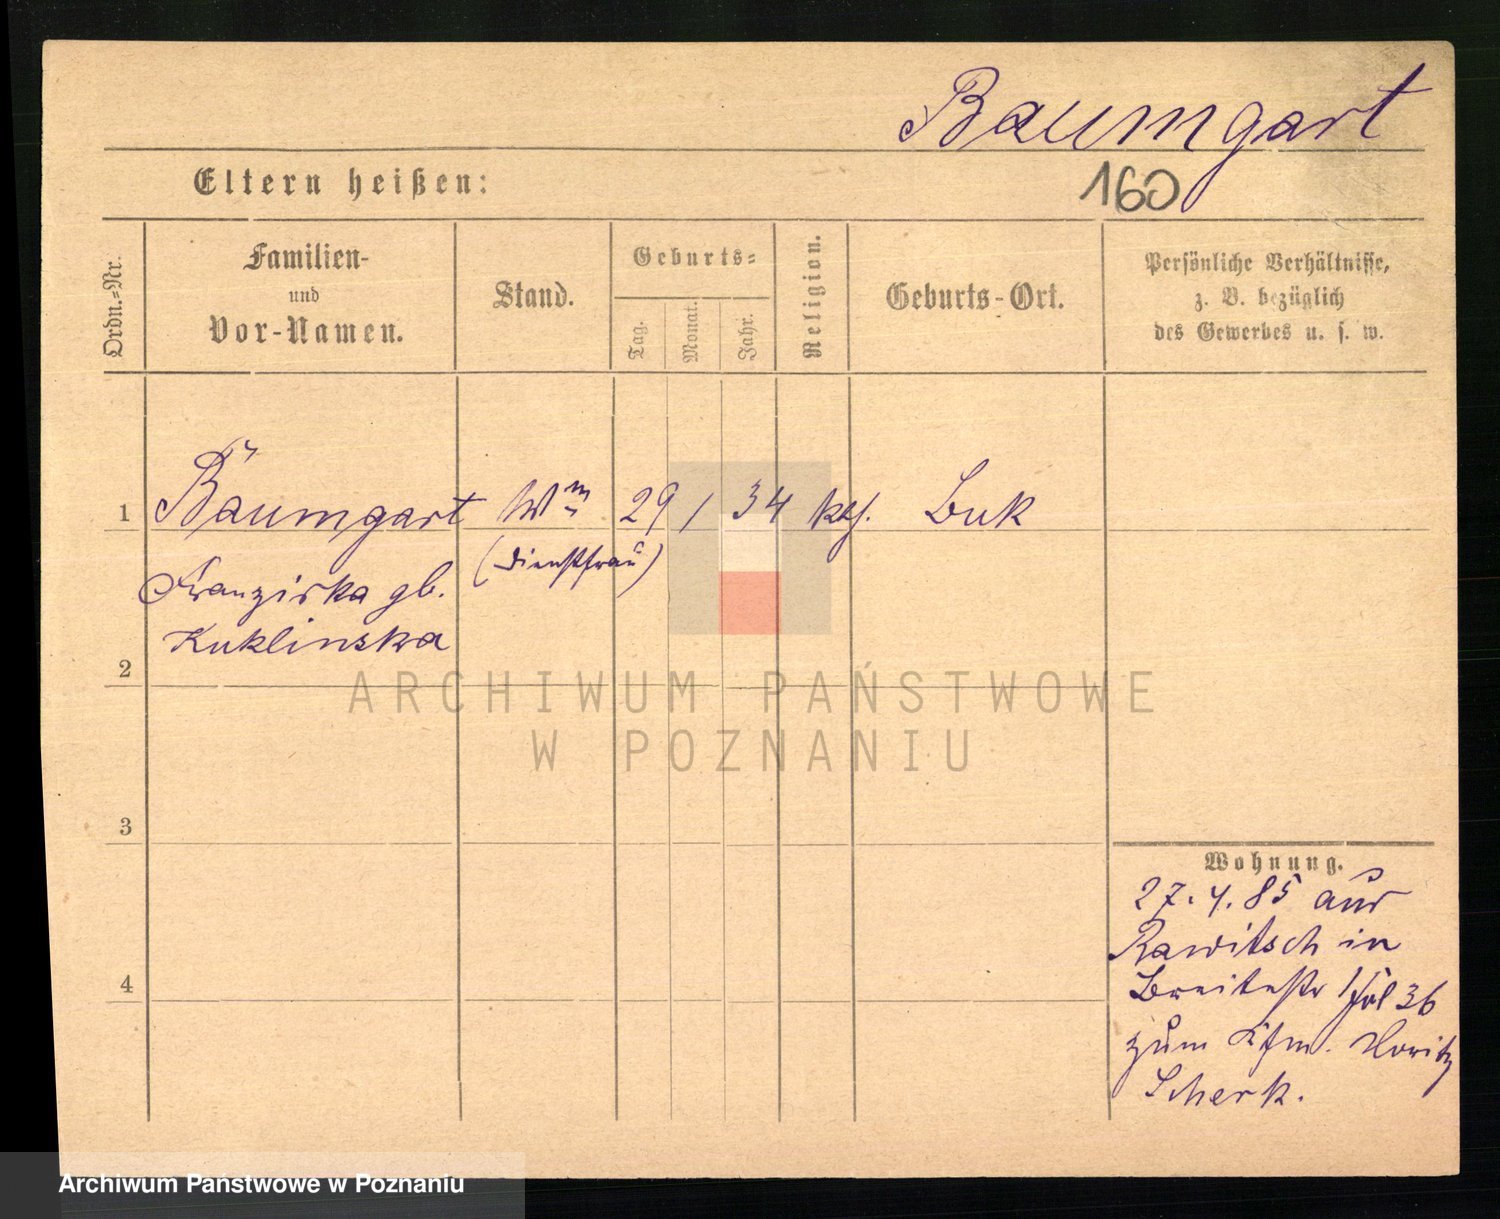 Baumgart
Eltern heißen:
160
Ordn.-Nr.
Familien-
und
Vor-Namen.
Stand.
Geburts-
Tag.
Monat.
Jahr.
Religion.
Geburts-Ort.
Persönliche Verhältnisse,
z. B. bezüglich
des Gewerbes u. s. w.
1 Baumgart Ww 29 / 34 kth. Buk
(Dienstfrau)
Franziska gb.
Kuklinska
2
ARCHIWUM PAŃSTWOWE
W POZNANIU
3
Wohnung.
27. 4. 85 aus
Rawitsch in
Breitestr 36
4
zum Kfm. Moritz
Scherk.
Archiwum Państwowe w Poznaniu